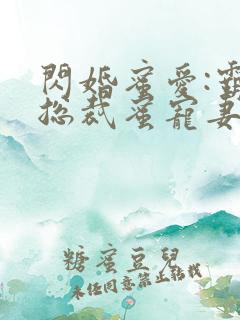 閃婚蜜愛:霸
総裁蜜寵妻
糖蜜豆兒
未任同意禁止轉載